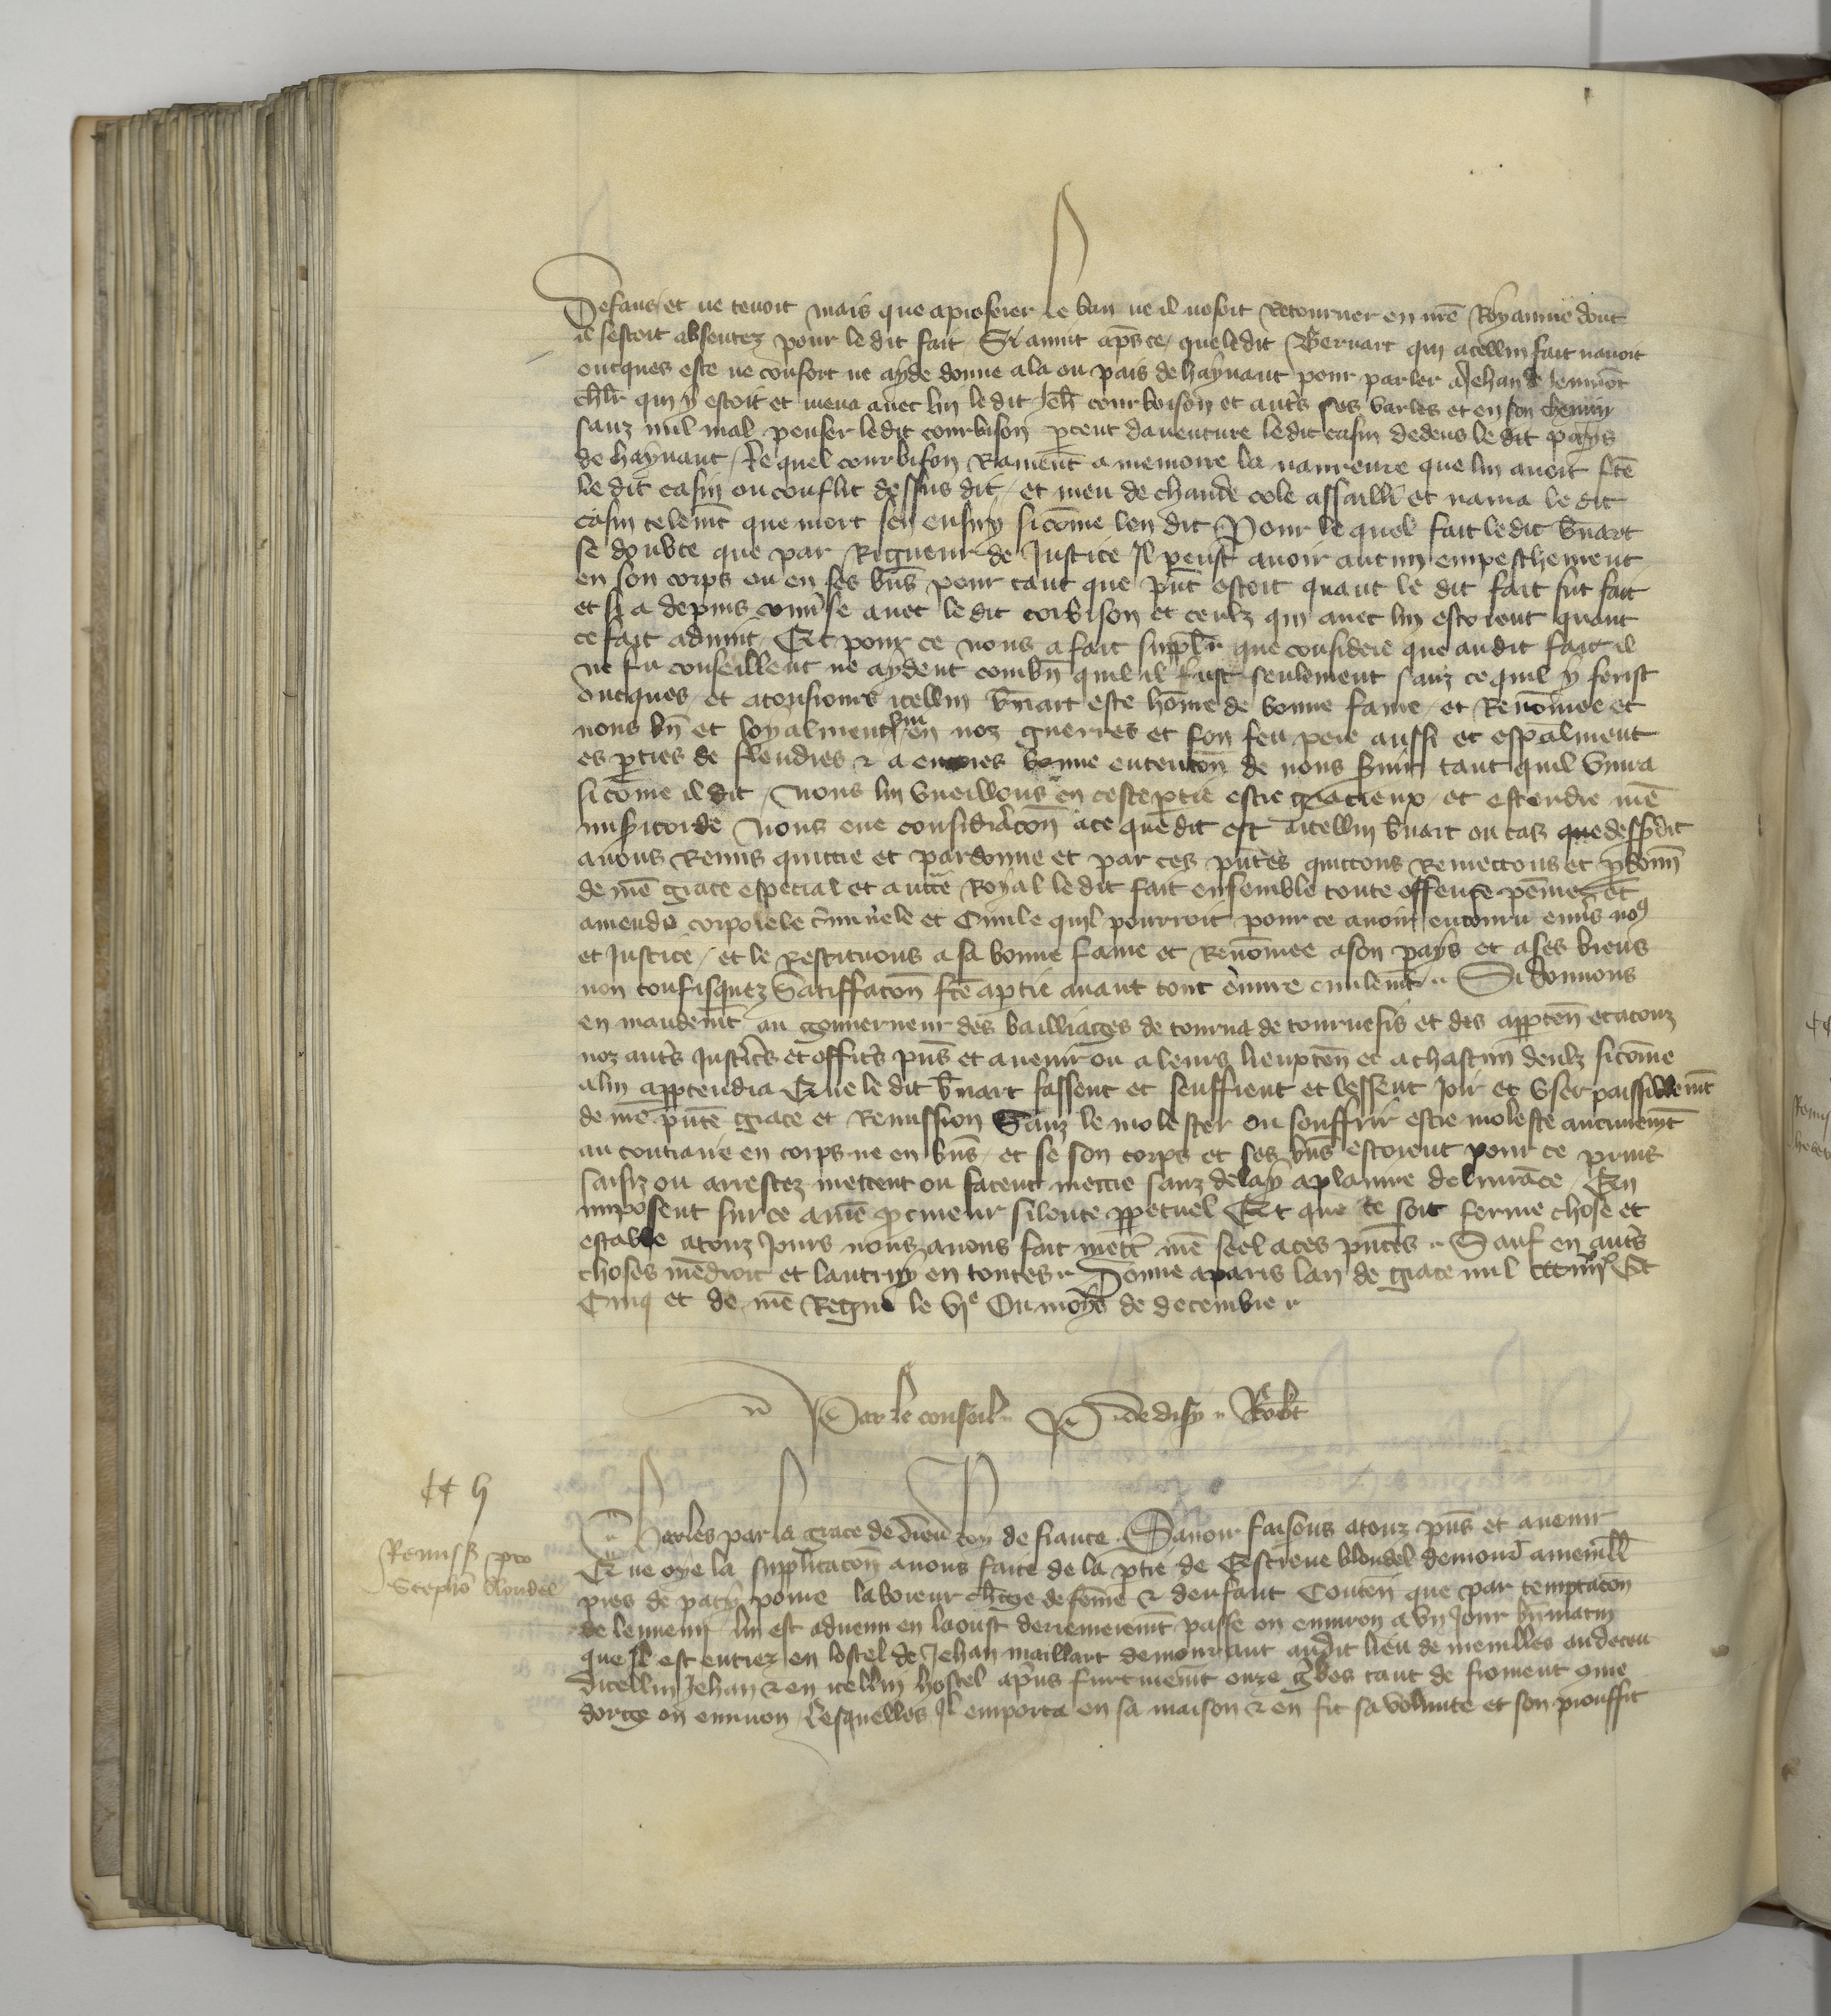 Defaus et ne tenoit mais que a prescier le ban ne il nosoit Retourner en nr̃e Royaume dont
il sestoit absentez pour le dit fait Si avint ap̃s ce que ledit Bernart qui a cellui fait navoit
oncques este ne confort ne ayde donne ala ou pais de haynaut pour parler a Jehan de
ch̃lr qui y estoit et mena avec lui le dit Jeh̃ courboison et aut̃s ses varles et en son chemin
sanz nul mal penser ledit courbison daventure ledit casin dedens le dit pays
de haynaut Le quel courbison Ramenãt a memoire la navreure que lui avoit fc̃e
le dit casin ou conflit dessus dit et meu de chaude cole assailli et navra le dit
casin telemẽt que mort sen ensuy sicõme len dit Pour le quel fait ledit b̃nart
se doubte que par Rigueur de Justice Il peust avoir aucun empeschement
en son corps ou en ses bñs pour tant que p̃nt estoit quant le dit fait fut fait
et si a depuis avec le dit corbison et ceulz qui avec lui estoient quant
ce fait advint Et pour ce nous a fait suppl̃r que considere que audit fait il
ne fu conseillent ne aydent combñ quil il fust seulement sanz ce quil y ferist
oncques et icellui b̃nart este hõme de bonne fame et Renõmee et
nous bñ et loyalment en noz guerres et son feu pere aussi et esp̃alment
es p̃ties de flendres & a encores bonne entencõn de nous s̃vir tant quil vivra
sicõme il dit Nous lui vueillons en ceste p̃tie estre gracieux et estendre nr̃e
mis̃icorde Nous eue considerac̃on a ce que dit est a icellui b̃nart ou cas que dess̃ dit
avons Remis quittie et pardonne et par ces p̃ntes quittons Remettons et p̃donñ
de nr̃e grace especial et auct̃e Royal le dit fait ensemble toute offense peine et
amende corporele c̃iminele et Civile quil pourroit pour ce avoir encouru env̾s no9
et Justice et le restituons a sa bonne fame et Renõmee a son pays et a ses biens
non confisquez Satiffac̃on fc̃e a p̃tie avant tout euvre civilemẽt Si donnons
en mandemẽt au gouverneur des bailliages de tourna de tournesis et des app̃teñ et a touz
noz aut̃s Justic̃s et offic̃s p̃ns et avenir ou a leurs lieuxteñ et a chascun deulz sicõme
a lui appartendra Que le dit b̃nart fassent et seuffrent et lessent Joir et User paisiblemẽt
de nr̃e p̃nte grace et Remission Sanz le molester ou souffrir estre moleste aucunemẽt
au contraire en corps ne en bñs et se son corps et ses bñs estoient pour ce prins
saisiz ou arrestez mettent ou facent mettre sanz delay a plainne delivrãce En
imposent sur ce a nr̃e p̃cureur silence pp̃etuel Et que ce soit ferme chose et
estable a touz Jours nous avons fait mett̃ nr̃e seel a ces p̃ntes Sauf en aut̃s
choses nr̃e droit et lautruy en toutes Donne a paris lan de grace mil ccciiijxx Et
Cinq et de nr̃e Regne le vje Ou moys de decembre
Par le conseil P de disy Rob̃t
Charles par la grace de dieu roy de france Savoir faisons a touz p̃ns et avenir
Que oye la supplicac̃on a nous faite de la p̃tie de Estiene blondel demour̃ a menill̃
pres de pacy povre laboreur ch̃gie de fẽme & denfant Conteñ que par temptac̃on
de lennemi lui est advenu en laoust derrenieremẽt passe ou environ a un Jour bñ matin
que Il est entrez en lostel de Jehan maillart demourant audit lieu de menilles au deceu
dicellui Jehan & en icellui hostel a p̃ns furtivemẽt onze g̃bes tant de froment 9me
dorge ou environ Lesquelles Il emporta en sa maison & en fit sa volunte et son prouffit
Remiss̃ pro
Steph̃o blondel